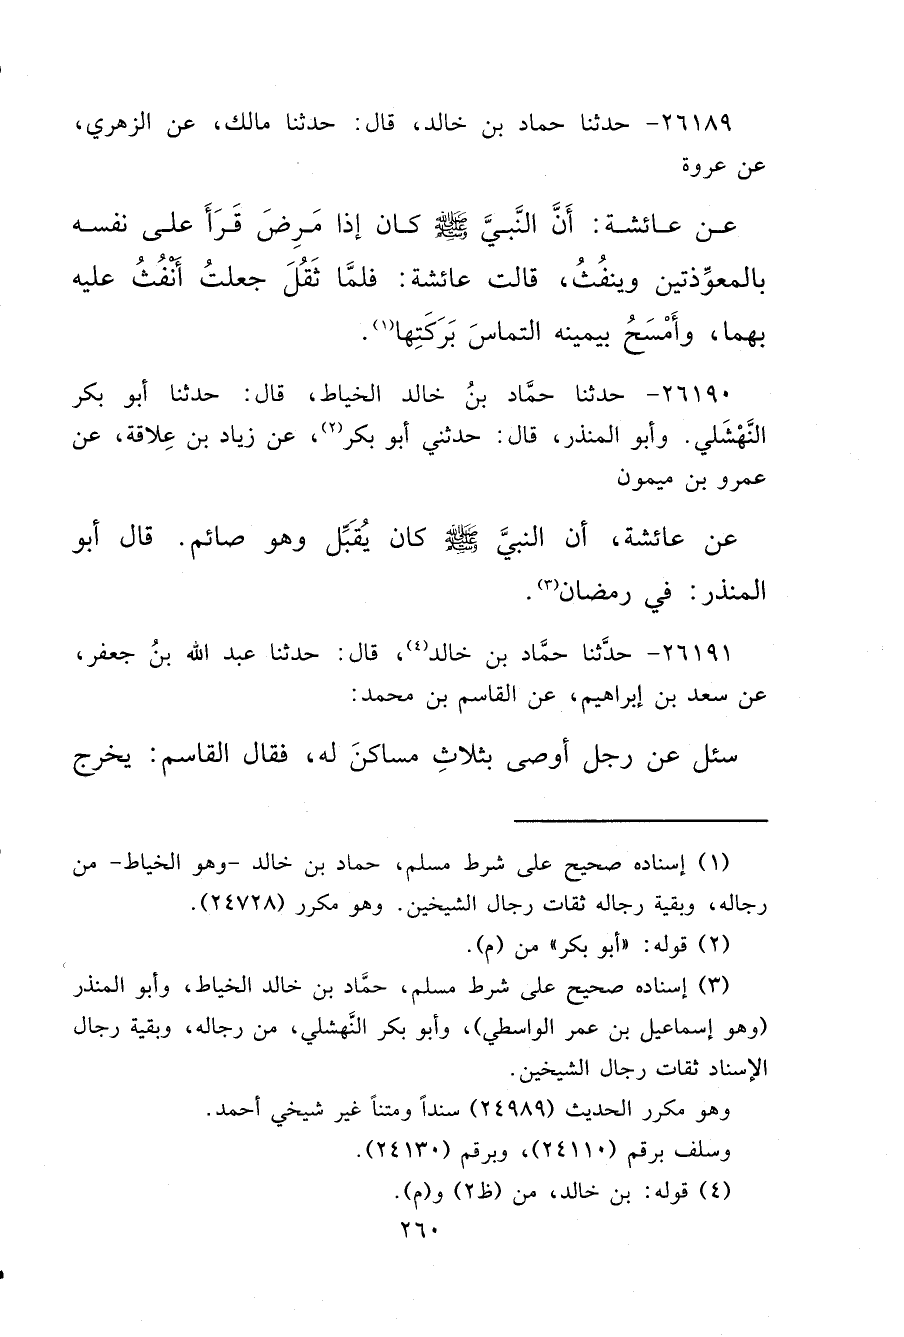 ٢٦١٨٩- حدثنا حماد بن خالد، قال: حدثنا مالك، عن الزهري،
عن عروة
عن عائشة: أَنَّ النَّبيَّ ﷺ كان إذا مَرِضَ قَرَأَ على نفسه
بالمعوِّذتين وينفُثُ، قالت عائشة: فلمَّا ثَقُلَ جعلتُ أَنْفُثُ عليه
بهما، وأَمْسَحُ بيمينه التماسَ بَرَكَتِها(١).
٢٦١٩٠- حدثنا حمَّاد بنُ خالد الخياط، قال: حدثنا أبو بكر
النَّهْشَلي. وأبو المنذر، قال: حدثني أبو بكر(٢)، عن زياد بن عِلاقة، عن
عمرو بن ميمون
عن عائشة، أن النبيَّ ﷺ كان يُقبِّل وهو صائم. قال أبو
المنذر: في رمضان(٣).
٢٦١٩١- حدَّثنا حمَّاد بن خالد(٤)، قال: حدثنا عبد الله بنُ جعفر،
عن سعد بن إبراهيم، عن القاسم بن محمد:
سئل عن رجل أوصى بثلاثِ مساكنَ له، فقال القاسم: يخرج
(١) إسناده صحيح على شرط مسلم، حماد بن خالد -وهو الخياط- من
رجاله، وبقية رجاله ثقات رجال الشيخين. وهو مكرر (٢٤٧٢٨).
(٢) قوله: «أبو بكر» من (م).
(٣) إسناده صحيح على شرط مسلم، حمَّاد بن خالد الخياط، وأبو المنذر
(وهو إسماعيل بن عمر الواسطي)، وأبو بكر النَّهشلي، من رجاله، وبقية رجال
الإسناد ثقات رجال الشيخين.
وهو مكرر الحديث (٢٤٩٨٩) سنداً ومتناً غير شيخي أحمد.
وسلف برقم (٢٤١١٠)، وبرقم (٢٤١٣٠).
(٤) قوله: بن خالد، من (ظ٢) و(م).
٢٦٠